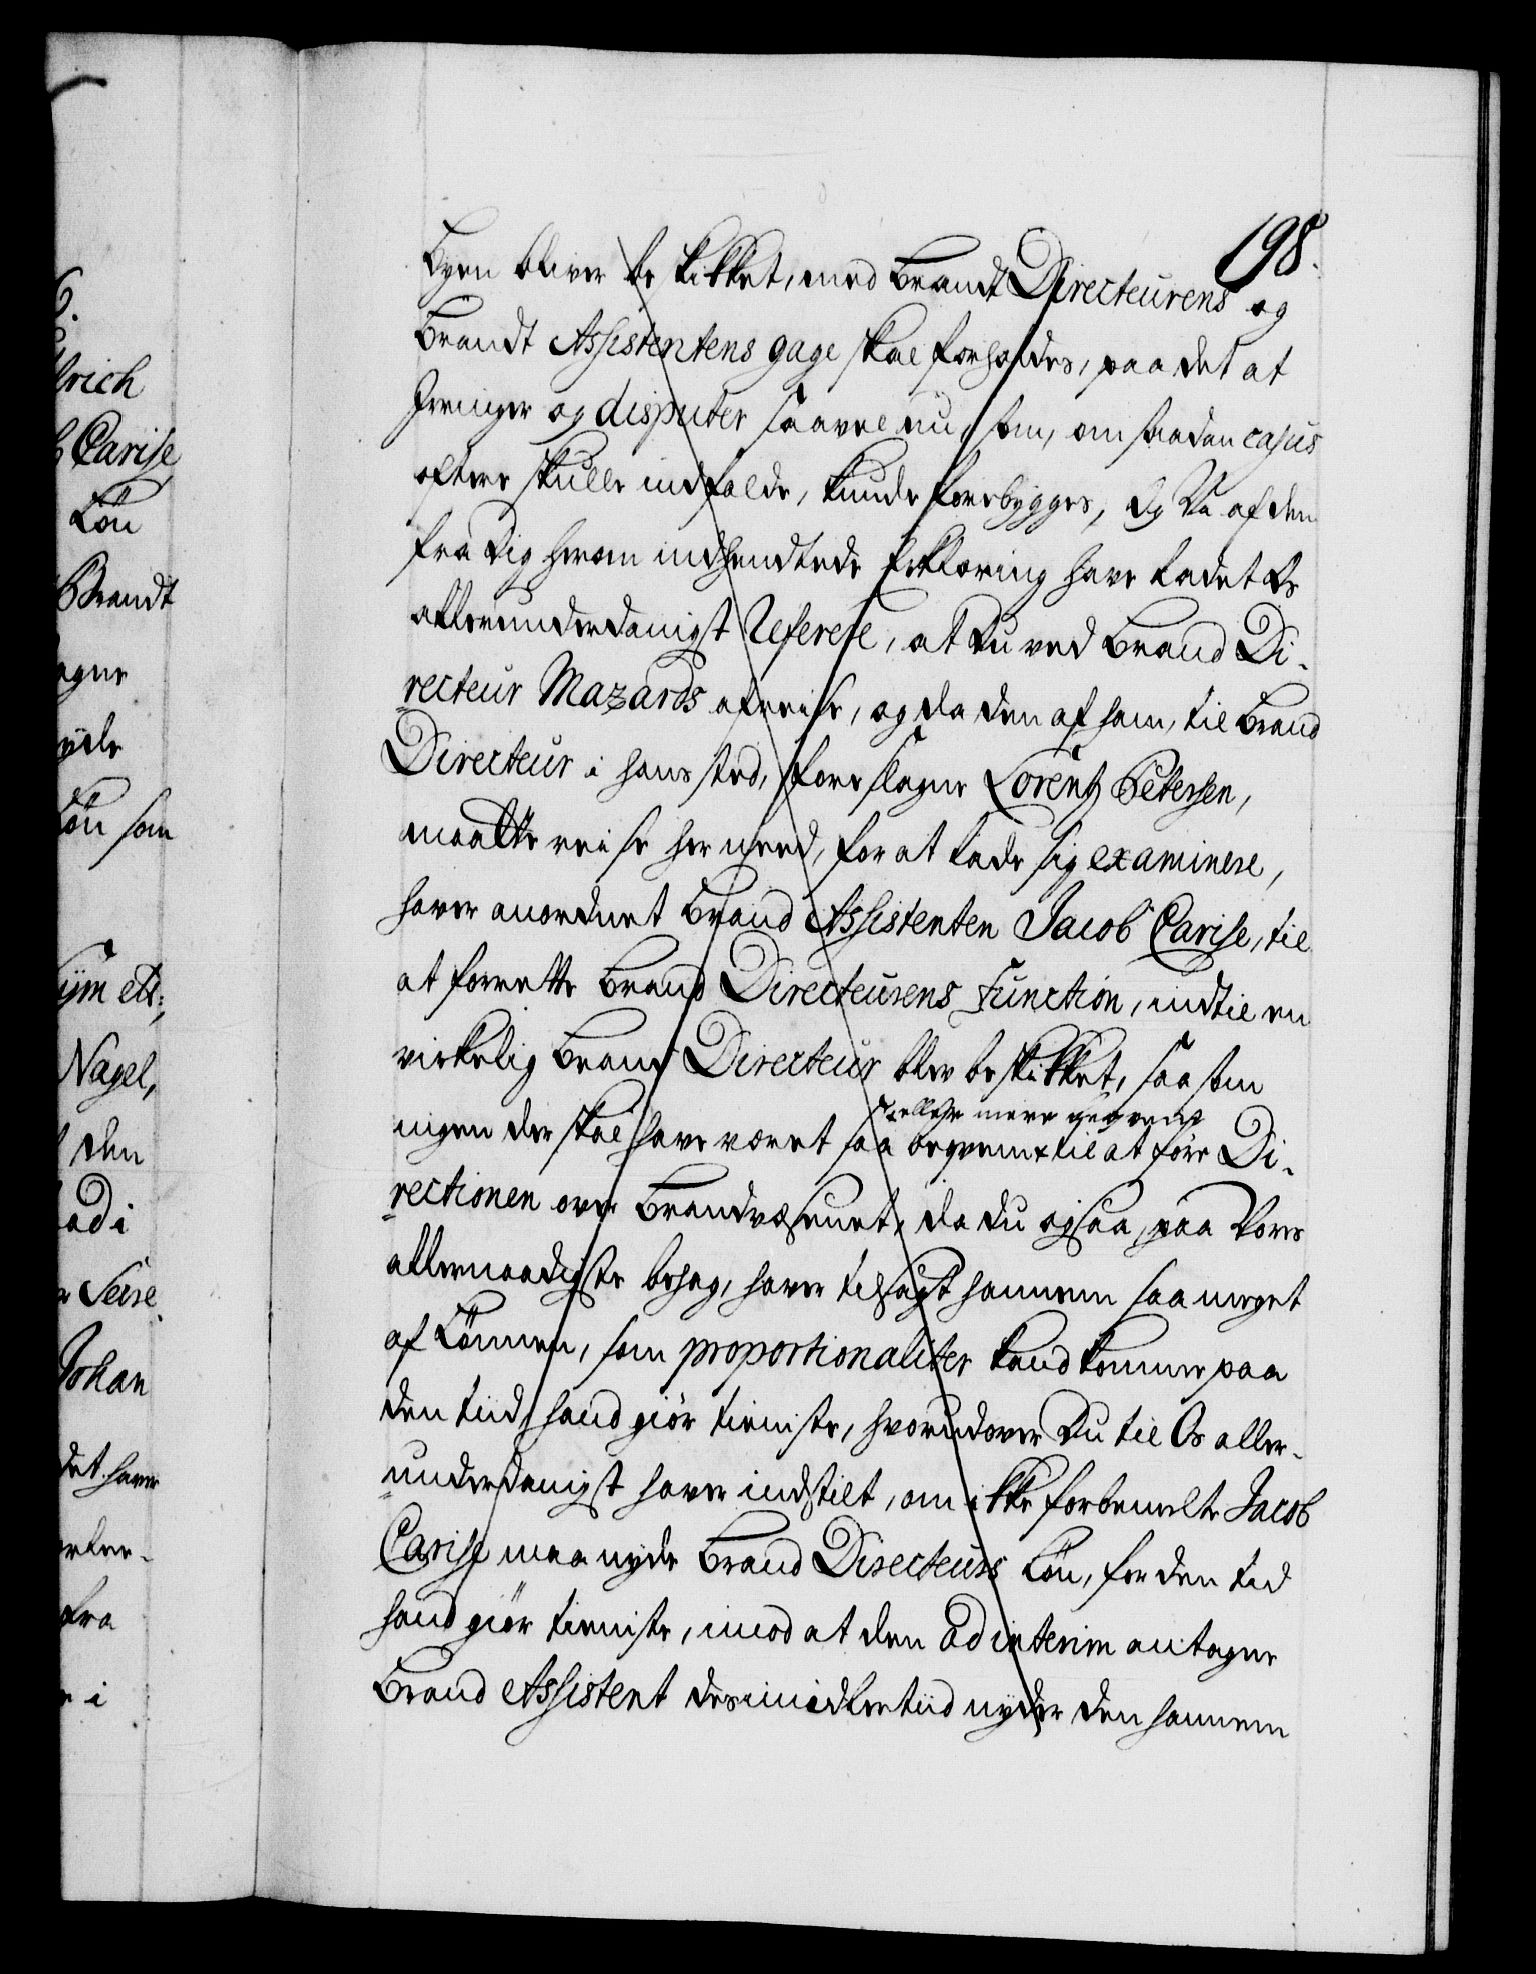 198.
Byen bliver beskikket, med Brandt Directeurens og
Brandt Assistentens gage skal forholdes, paa det at
Irringer og disputer saavel nu, som, om saadan casus
oftere skulle indfalde, kunde forebygges, Og Vi af den
fra Dig herom indhendtede Erklæring have ladet Os
allerunderdanigst Referere, at Du ved Brand Di-
recteur Mazards afreise, og da den af ham, til Brand
Directeur i hans sted, foreslagne Lorentz Petersen,
maatte reise her need, for at lade sig examinere,
haver anordnet Brand Assistenten Jacob Carise, til
at forrette Brand Directeurens Function, indtil en
virkelig Brand Directeur blev beskikket, saasom
ingen der skal have været saa beqvem til at føre Di-
eller mere
rectionen over Brandvæsenet, da Du ogsaa, paa Vores
allernaadigste behag, haver tilsagt hannem saa meget
af Lønnen, som proportionaliter kand komme paa
den tiid, hand giør tieniste, hvorudover Du til Os aller-
underdanigst haver indstilt, om ikke forbemelte Jacob
Carise maa nyde Brand Directeurs Løn, for den tid
hand giør tieniste, imod at den ad interim antagne
Brand Assistent desimidlertiid nyder den hannem
lrich
Carise
Løn
Brandt
agne
nyde
Løn som
Nagel,
den
ad i
Johan
det haver
fra
i